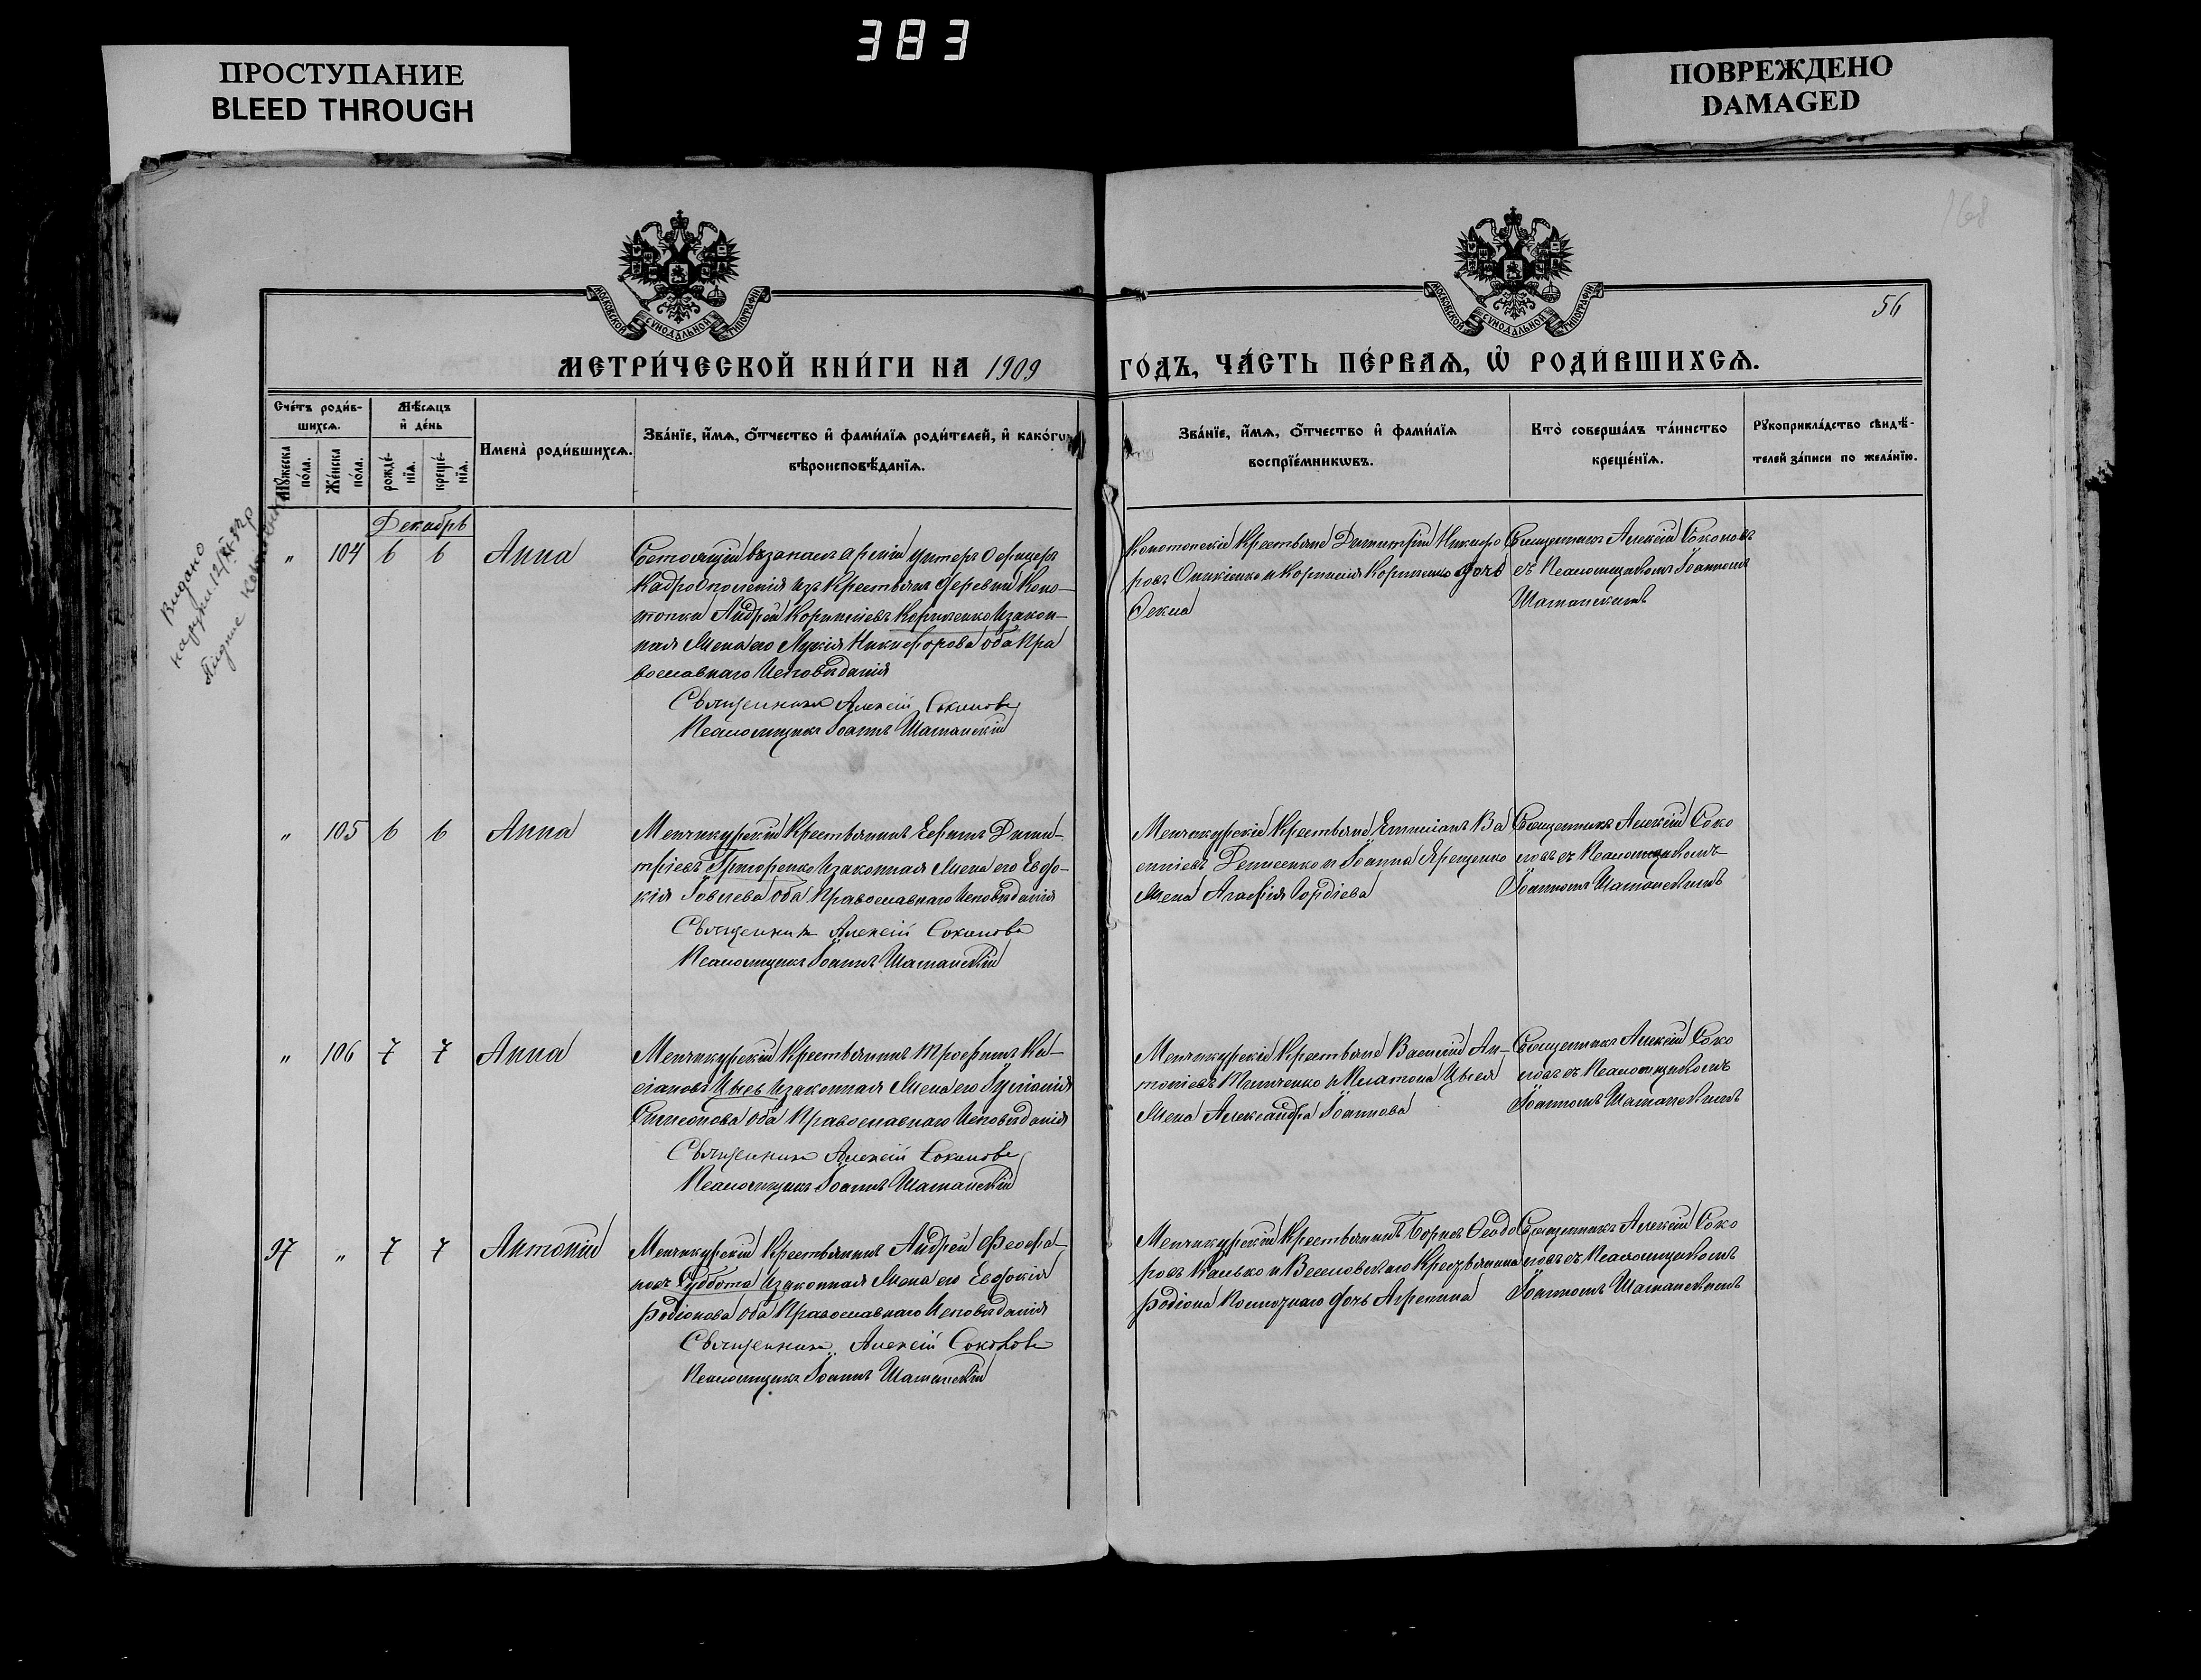 383
ПРОСТУПАНИЕ
BLEED THROUGH
ПОВРЕЖДЕНО
DAMAGED
168
МОСКОВСКОЙ СѴНОДАЛЬНОЙ ТИПОГРАФІИ
МОСКОВСКОЙ СѴНОДАЛЬНОЙ ТИПОГРАФІИ
56
МЕТРИ́ЧЕСКОЙ КНИ́ГИ НА 1909
ГО́ДЪ, ЧА́СТЬ ПЕ́РВАѦ, Ѡ҆ РОДИ́ВШИХСѦ.
Сче́тъ роди́в-
шихсѧ.
Мѣ́сѧцъ
и҆ де́нь
Мꙋ́жеска по́ла.
Же́нска по́ла.
рожде́-
нїѧ.
креще́-
нїѧ.
Имена̀ роди́вшихсѧ.
Зва́нїе, и҆́мѧ, ѻ҆́тчество и҆ фами́лїѧ роди́телей, и҆ како́гѡ
вѣроисповѣ́данїѧ.
Зва́нїе, и҆́мѧ, ѻ҆́тчество и҆ фами́лїѧ
воспрїе́мникѡвъ.
Кто̀ соверша́лъ та́инство
креще́нїѧ.
Рꙋкоприкла́дство свидѣ́-
телей за́писи по жела́нїю.
Видано
Декабрь
" 104 6 6 Анна
Состоящій въ запасѣ арміи унтеръ офицеръ
изъ крестьянъ деревни Коно-
топки Андрей Корниліевъ Корниенко и закон-
ная жена его Лукія Никифорова оба пра
вославнаго исповѣданія
Священникъ Алексій Соколовъ
Псаломщикъ Іоаннъ Шаманскій
Конотопскіе крестьяне Димитрій Никифо
ровъ и Корнилія Корниенко дочь
Ѳекла
Священникъ Алексій Соколовъ
съ псаломщикомъ Іоанномъ
Шаманскимъ
" 105 6 6 Анна
Менчикурскій крестьянинъ Ефимъ Дими-
тріевъ Григоренко и законная жена его Евдо-
кія Іовлева оба православнаго исповѣданія
Священникъ Алексій Соколовъ
Псаломщикъ Іоаннъ Шаманскій
Менчикурскіе крестьяне Емиліанъ Ва
силіевъ Денисенко и Іоанна Ярещенко
жена Агафія Гордіева
Священникъ Алексій Соко
ловъ съ псаломщикомъ
Іоанномъ Шаманскимъ
" 106 7 7 Анна
Менчикурскій крестьянинъ Трофимъ Ка-
сіановъ Цысь и законная жена его Іуліанія
Симеонова оба православнаго исповѣданія
Священникъ Алексій Соколовъ
Псаломщикъ Іоаннъ Шаманскій
Менчикурскіе крестьяне Василій Ан-
тоніевъ и Платона Цыся
жена Александра Іоаннова
Священникъ Алексій Соко
ловъ съ псаломщикомъ
Іоанномъ Шаманскимъ
97 " 7 7 Антоній
Менчикурскій крестьянинъ Андрей Феофа-
новъ Суббота и законная жена его Евдокія
Родіонова оба православнаго исповѣданія
Священникъ Алексій Соколовъ
Псаломщикъ Іоаннъ Шаманскій
Менчикурскій крестьянинъ Борисъ Ѳеодо
ровъ Калько и Веселовскаго крестьянина
Родіона дочь Агрепина
Священникъ Алексій Соко
ловъ съ псаломщикомъ
Іоанномъ Шаманскимъ